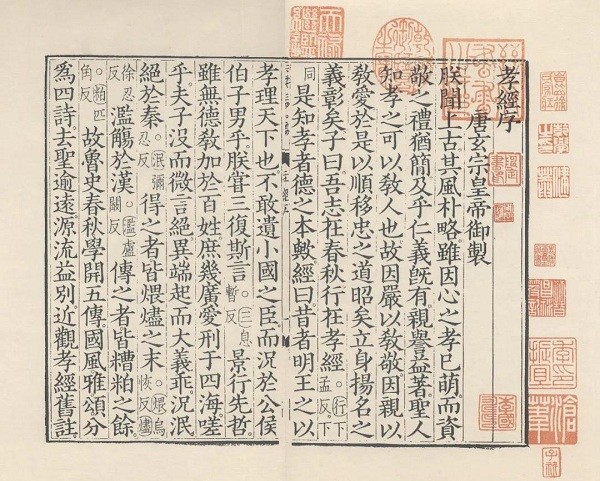 孝經序
唐玄宗皇帝御製
朕聞上古其風朴略雖因心之孝已萌而資
敬之禮猶簡及乎仁義既有親譽益著聖人
知孝之可以敎人也故因嚴以敎敬因親以
敎愛於是以順移忠之道昭矣立身揚名之
義彰矣子曰吾志在春秋行在孝經行下孟反下
同是知孝者德之本歟經曰昔者明王之以
孝理天下也不敢遺小國之臣而況於公侯
伯子男乎朕甞三復斯言三息暫反景行先哲
雖無德敎加於百姓庶幾廣愛刑于四海嗟
乎夫子沒而微言絕異端起而大義乖況泯
絕於秦泯彌忍反得之者皆煨燼之末煨烏恢反燼
徐忍反濫觴於漢濫盧闞反傳之者皆糟粕之餘
粕匹角反故魯史春秋學開五傳國風雅頌分
爲四詩去聖逾遠源流益別近觀孝經舊註